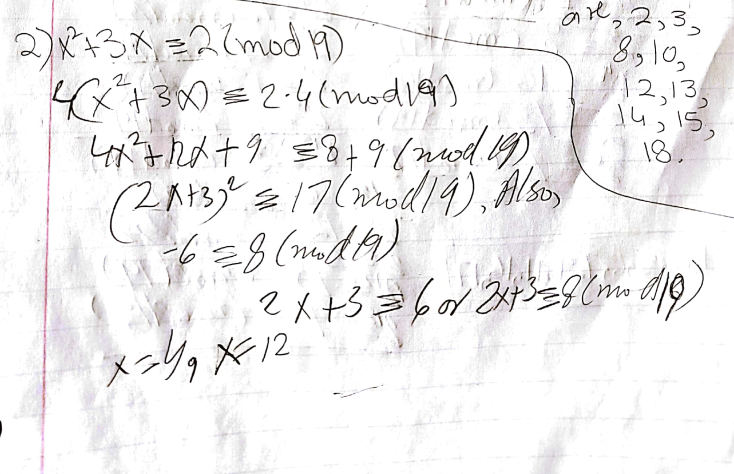 are, 2, 3,
8, 10,
12, 13,
14, 15,
18.
2) x²+3x ≡ 2 (mod 19)
4(x²+3x) ≡ 2·4 (mod 19)
4x²+12x+9 ≡ 8+9 (mod 19)
(2x+3)² ≡ 17 (mod 19), Also,
-6 ≡ 8 (mod 19)
2x+3 ≡ 6 or 2x+3 ≡ 8 (mod 19)
x = 4, x = 12